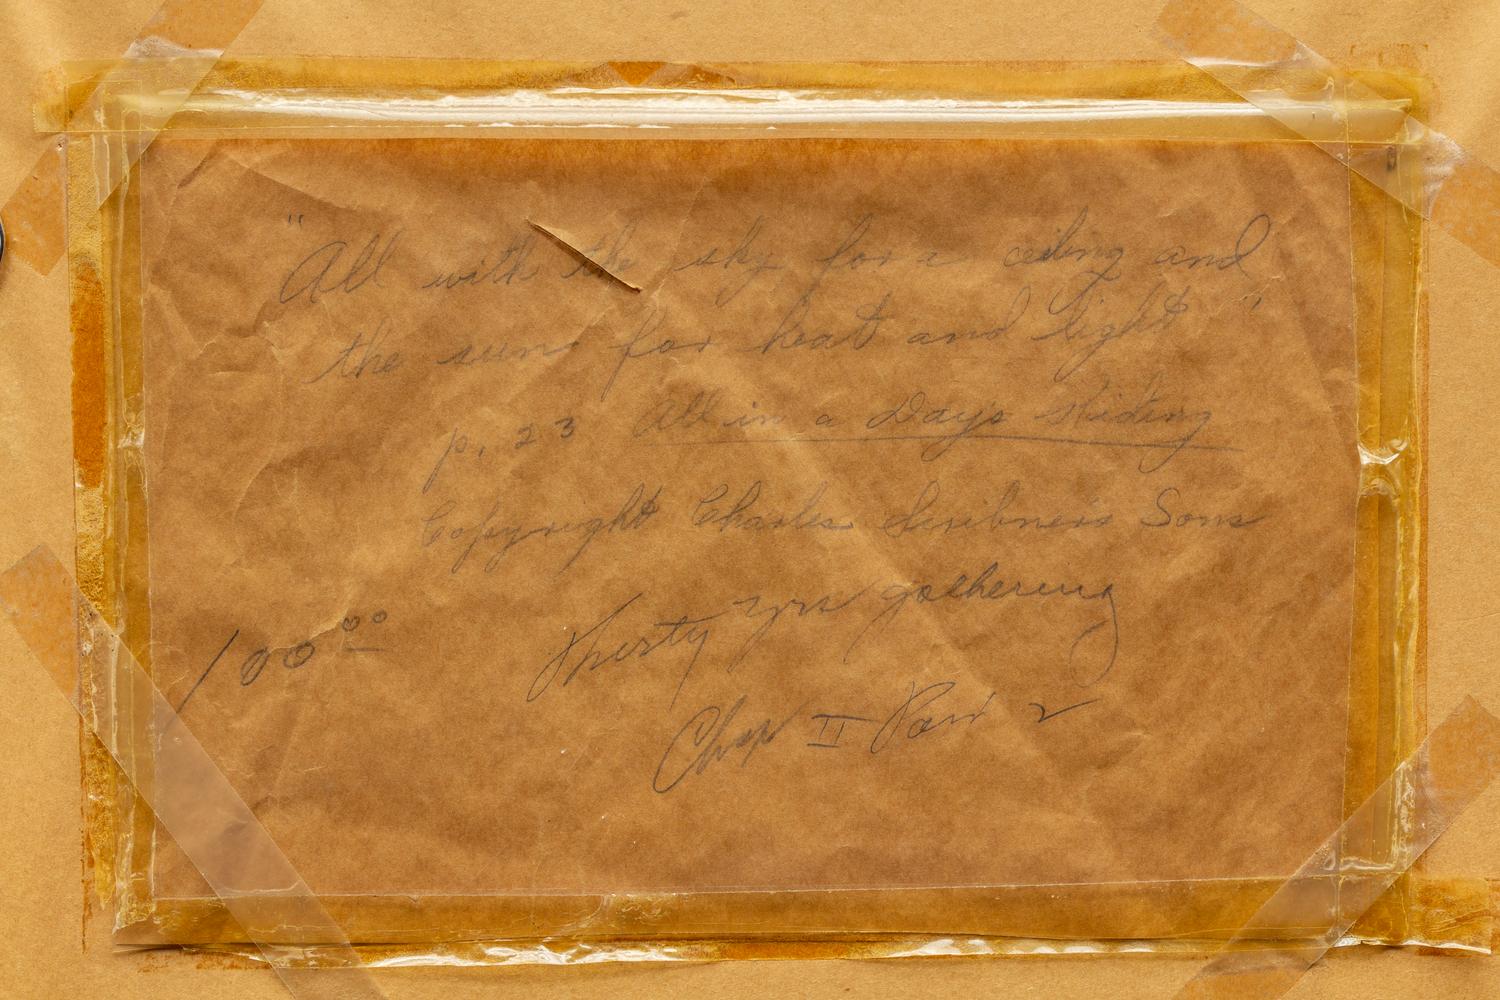 "All with the sky for a ceiling and
the sun for heat and light"
p. 23 All in a Days Riding
Copyright Charles Scribners Sons
Thirty yrs gathering
100 00
Chap II Part 2